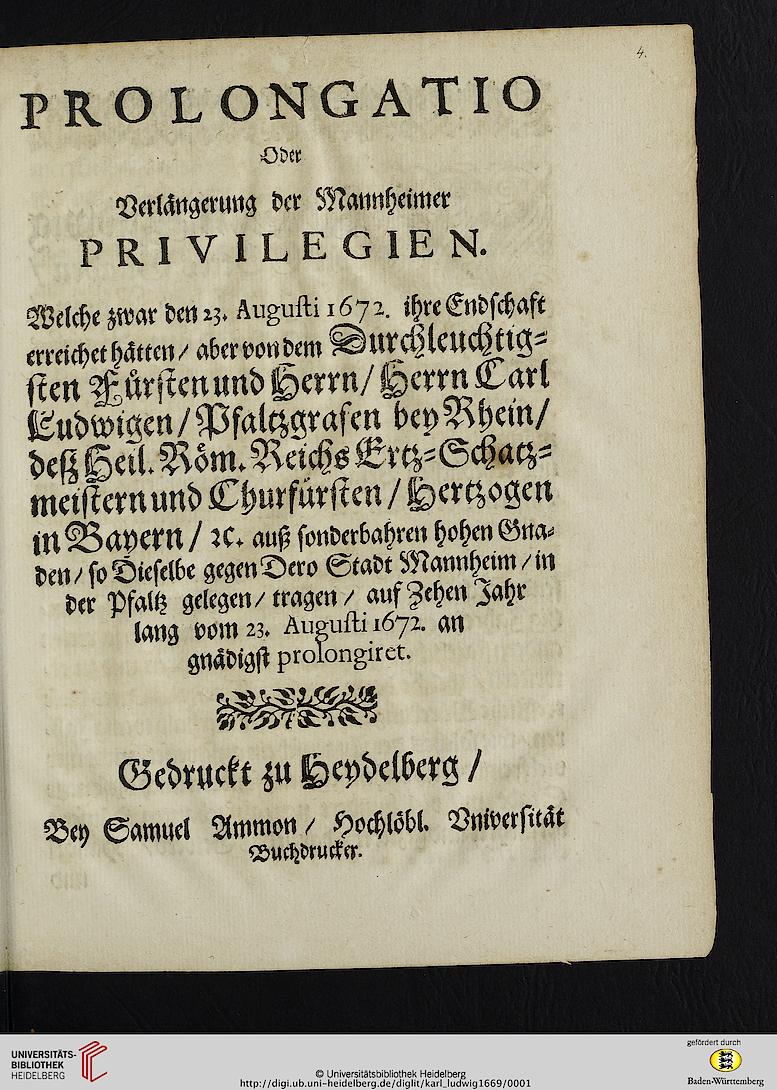 4.
PROLONGATIO
Oder
Verlängerung der Mannheimer
PRIVILEGIEN.
Welche zwar den 23. Augusti 1672. ihre Endschaft
erreichet hätten / aber von dem Durchleuchtig=
sten Fürsten und Herrn / Herrn Carl
Ludwigen / Pfaltzgrafen bey Rhein /
deß Heil. Röm. Reichs Ertz=Schatz=
meistern und Churfürsten / Hertzogen
in Bayern / ꝛc. auß sonderbahren hohen Gna=
den / so Dieselbe gegen Dero Stadt Mannheim / in
der Pfaltz gelegen / tragen / auf Zehen Jahr
lang vom 23. Augusti 1672. an
gnädigst prolongiret.
Gedruckt zu Heydelberg /
Bey Samuel Ammon / Hochlöbl. Vniversität
Buchdrucker.
UNIVERSITÄTS-
BIBLIOTHEK
HEIDELBERG
© Universitätsbibliothek Heidelberg
http://digi.ub.uni-heidelberg.de/diglit/karl_ludwig1669/0001
gefördert durch
Baden-Württemberg